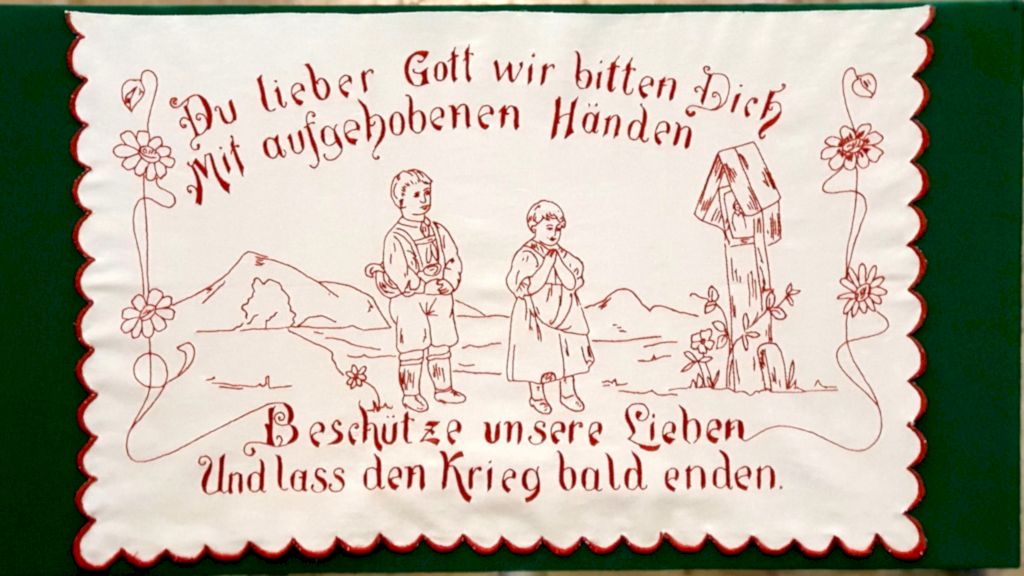 Du lieber Gott wir bitten Dich
Mit aufgehobenen Händen
Beschütze unsere Lieben
Und lass den Krieg bald enden.